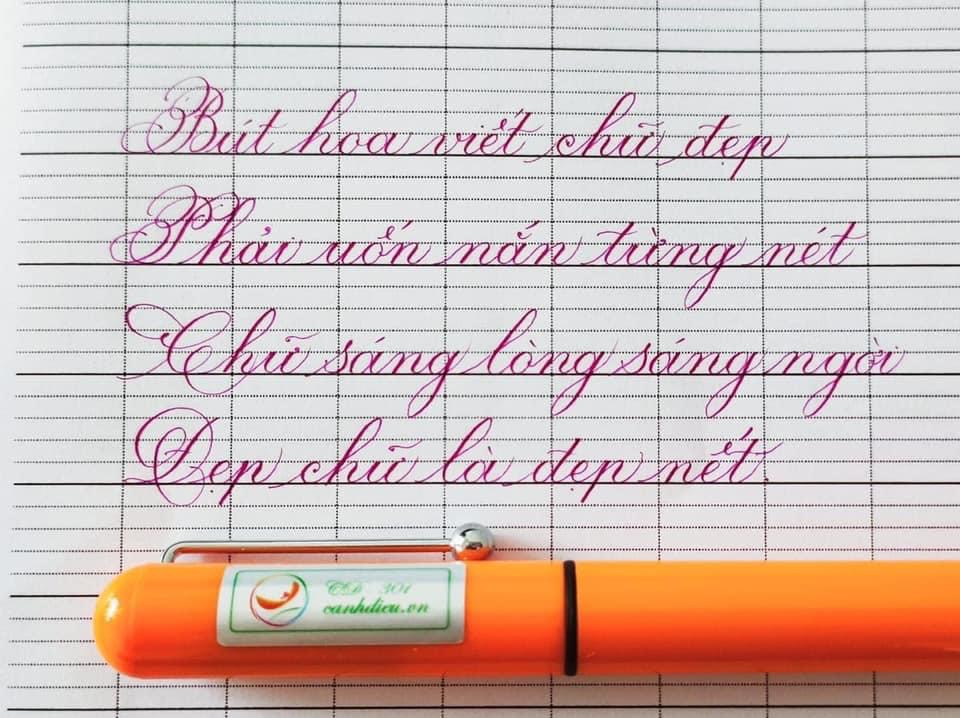 Bút hoa viết chữ đẹp
Phải uốn nắn từng nét
Chữ sáng lòng sáng ngời
Đẹp chữ là đẹp nết.
CD - 301
canhdieu.vn